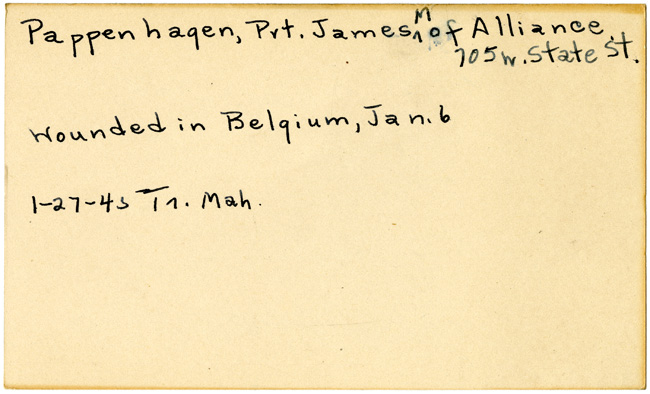 Pappenhagen, Pvt. James M of Alliance,
705 W. State St.
Wounded in Belgium, Jan. 6
1-27-45 Tr. Mah.